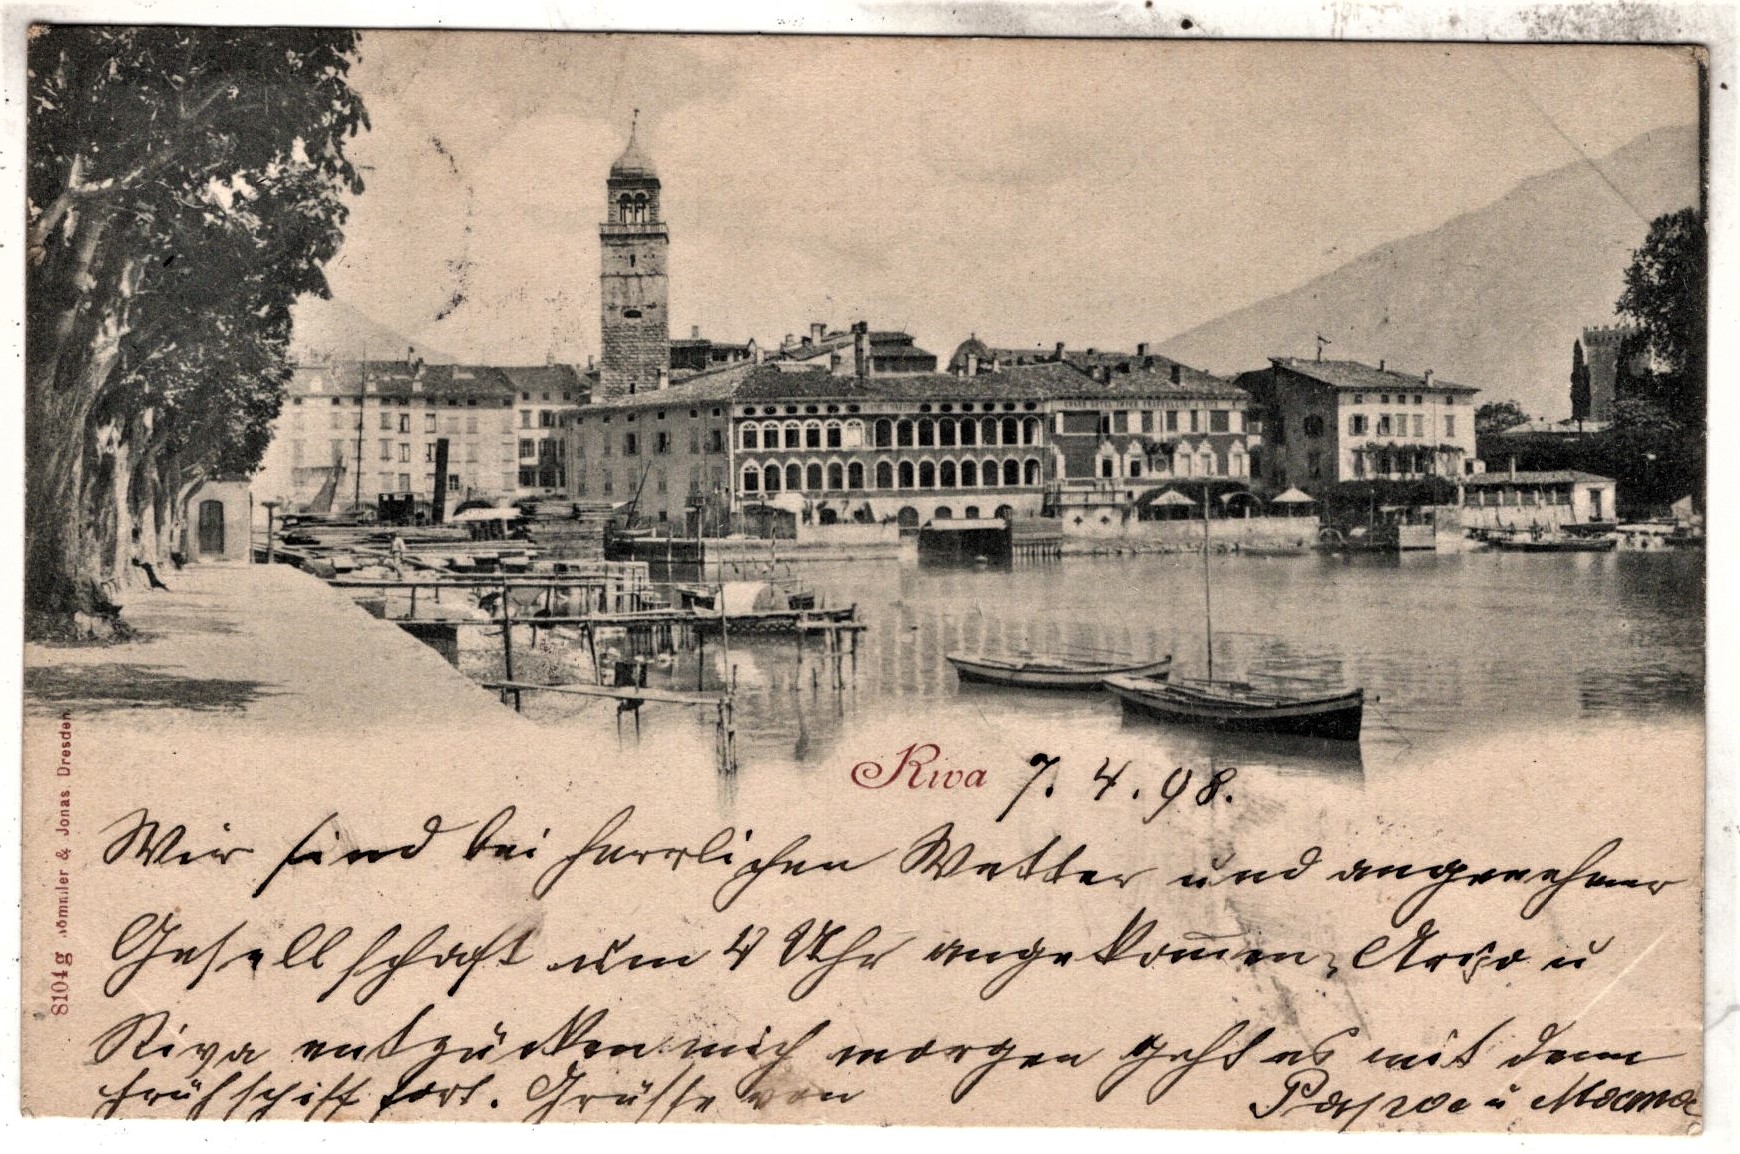 Riva 7. 4. 98.
Wir sind bei herrlichen Wetter und angenehmer
Gesellschaft um 4 Uhr angekom̅en, Arco u
Riva entzücken mich morgen geht es mit dem
Frühschiff fort. Grüsse von
Papa u Mama
8104 g Römmler & Jonas, Dresden